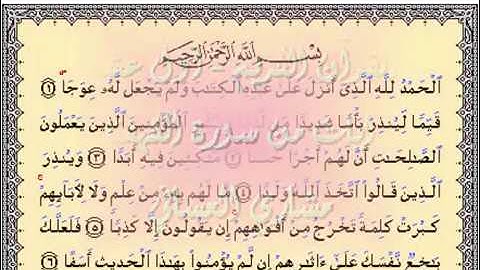 بِسْمِ ٱللَّهِ ٱلرَّحْمَٰنِ ٱلرَّحِيمِ
ٱلْحَمْدُ لِلَّهِ ٱلَّذِىٓ أَنزَلَ عَلَىٰ عَبْدِهِ ٱلْكِتَٰبَ وَلَمْ يَجْعَل لَّهُۥ عِوَجَا ۜ ١
قَيِّمًا لِّيُنذِرَ بَأْسًا شَدِيدًا مِّن ٱلْمُؤْمِنِينَ ٱلَّذِينَ يَعْمَلُونَ
ٱلصَّٰلِحَٰتِ أَنَّ لَهُمْ أَجْرًا حَسَنًا ٢ مَّٰكِثِينَ فِيهِ أَبَدًا ٣ وَيُنذِرَ
ٱلَّذِينَ قَالُوا۟ ٱتَّخَذَ ٱللَّهُ وَلَدًا ٤ مَّا لَهُم بِهِۦ مِنْ عِلْمٍ وَلَا لِـَٔابَآئِهِمْ ۚ
كَبُرَتْ كَلِمَةً تَخْرُجُ مِنْ أَفْوَٰهِهِمْ ۚ إِن يَقُولُونَ إِلَّا كَذِبًا ٥ فَلَعَلَّكَ
بَٰخِعٌ نَّفْسَكَ عَلَىٰٓ ءَاثَٰرِهِمْ إِن لَّمْ يُؤْمِنُوا۟ بِهَٰذَا ٱلْحَدِيثِ أَسَفًا ٦